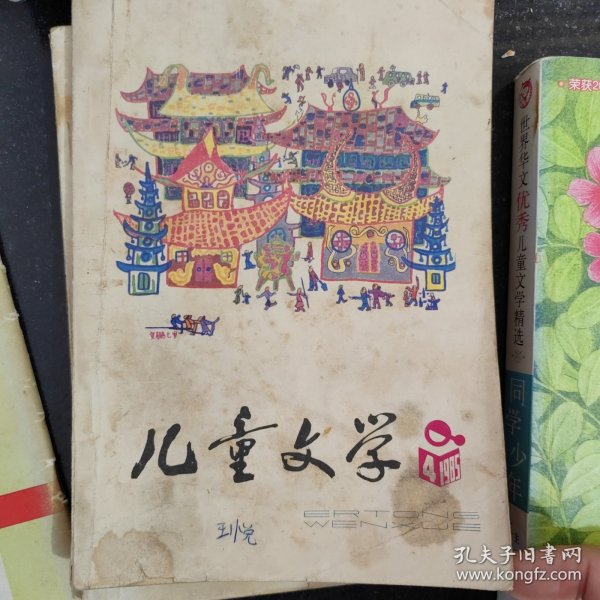 儿童文学
4
1985
ERTONG
WENXUE
荣获20
世界华文优秀儿童文学精选
同学少年
主
孔夫子旧书网
www.kongfz.com